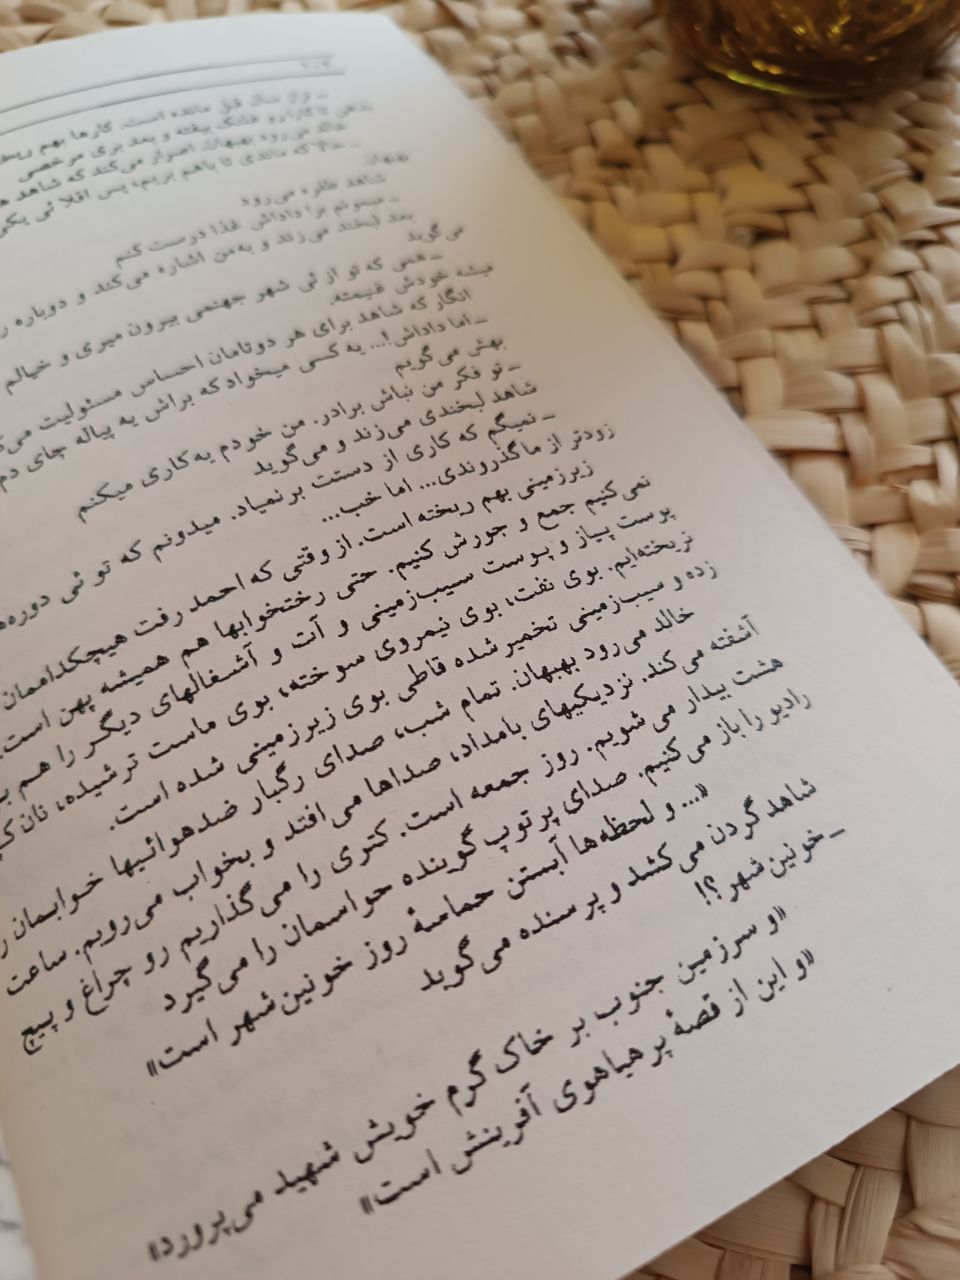 ـ تراز سال قبل مانده است. کارها بهم
بدهی تا کارا رو غلتک بیفته و بعد بری مرخصی
خالد می‌رود بهبهان. اصرار می‌کند که شاهد
ـ حالا که ماندی تا باهم بریم، پس اقلا ئی یکی
بهبهان
شاهد طفره می‌رود
ـ میمونم برا داداش غذا درست کنم
بعد لبخند می‌زند و به‌من اشاره می‌کند و دوباره
می‌گوید
ـ همی که تو از ئی شهر جهنمی بیرون میری و خیالم
میشه خودش غنیمته.
انگار که شاهد برای هر دوتامان احساس مسئولیت
ـ اما داداش!... یه کسی میخواد که براش یه پیاله چای دم
بهش می‌گویم
ـ تو فکر من نباش برادر. من خودم یه کاری میکنم
شاهد لبخندی می‌زند و می‌گوید
ـ نمیگم که کاری از دستت برنمیاد. میدونم که تو ئی
زودتر از ما گذروندی... اما خب...
زیرزمینی بهم ریخته است. از وقتی که احمد رفت هیچکداممان
نمی‌کنیم جمع و جورش کنیم. حتی رختخوابها هم همیشه پهن است.
پوست پیاز و پوست سیب‌زمینی و آت و آشغالهای دیگر را هم
نریخته‌ایم. بوی نفت، بوی نیمروی سوخته، بوی ماست ترشیده، نان
زده و سیب‌زمینی تخمیر شده قاطی بوی زیرزمینی شده است.
خالد می‌رود بهبهان. تمام شب، صدای رگبار ضدهوائیها خوابمان
آشفته می‌کند. نزدیکیهای بامداد، صداها می‌افتد و بخواب می‌رویم. ساعت
هشت بیدار می‌شویم. روز جمعه است. کتری را می‌گذاریم رو چراغ و پیچ
رادیو را باز می‌کنیم. صدای پرتوپ گوینده حواسمان را می‌گیرد
«... و لحظه‌ها آبستن حماسهٔ روز خونین‌شهر است»
شاهد گردن می‌کشد و پرسنده می‌گوید
ـ خونین‌شهر؟!
«و سرزمین جنوب بر خاک گرم خویش شهید می‌پرورد»
«و این از قصهٔ پرهیاهوی آفرینش است»